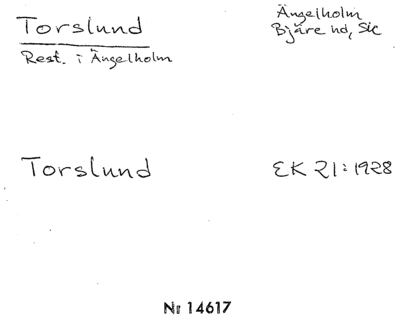 Torslund
Rest. i Ängelholm
Ängelholm
Bjäre hd, Sk
Torslund
EK 21:1928
Nr 14617